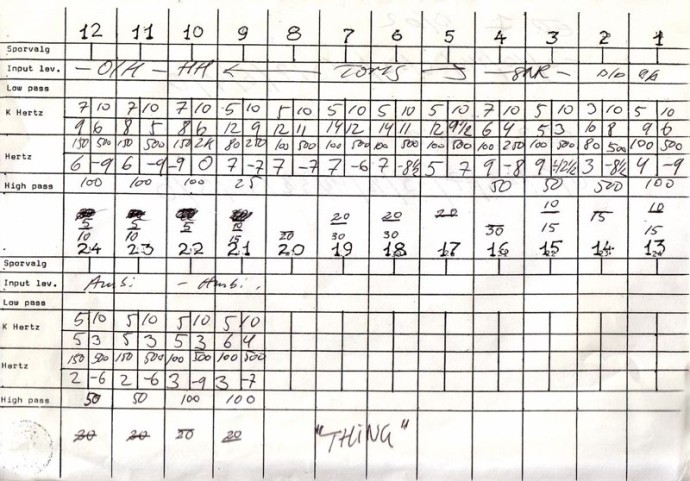 12 11 10 9 8 7 6 5 4 3 2 1
Sporvalg
Input lev. — O/H — HH ← TOMS → — SNR —
Low pass
K Hertz 7 10 7 10 7 10 5 10 5 10 5 10 5 10 5 10 7 10 5 10 3 10 5 10
9 6 8 5 8 6 12 9 12 11 14 12 14 11 12 9½ 6 4 5 3 10 8 9 6
Hertz 150 500 150 500 150 2K 80 250 100 500 100 500 100 500 100 500 100 250 100 500 80 500 100 500
6 -9 6 -9 -9 0 7 -7 7 -7 7 -6 7 -8½ 5 7 9 -8 9 -12½ 3 -8½ 4 -9
High pass 100 100 100 25 50 50 500 100
20 20 20 10 15 10
5 5 5 10
10 10 15 20 30 30 30 15 15
24 23 22 21 20 19 18 17 16 15 14 13
Sporvalg
Input lev. Ambi - Ambi.
Low pass
K Hertz 5 10 5 10 5 10 5 10
5 3 5 3 5 3 6 4
Hertz 150 500 150 500 100 500 100 500
2 -6 2 -6 3 -9 3 -7
High pass 50 50 100 100
20 20 20 20 "THING"